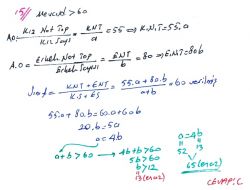 15// Mevcud > 60
A.O = Kız Not Top / Kız Sayıs = KNT / a = 55 ⇒ K.N.T = 55.a
A.O = Erkek Not Top / Erkek Sayısı = ENT / b = 80 ⇒ E.N.T = 80b
Sınıf = KNT + ENT / K.S + E.S = 55.a + 80.b / a+b = 60 verilmiş
55a + 80b = 60a + 60b
20.b = 5a
a = 4b
a + b > 60 → 4b + b > 60
5b > 60
b > 12
13 (en az)
a = 4b
52 13
65 (en az)
CEVAP: C